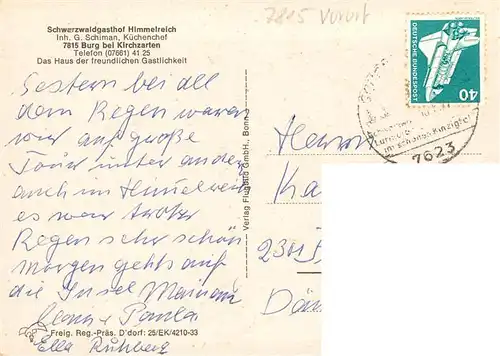 7815 Vorort
Schwarzwaldgasthof Himmelreich
Inh. G. Schiman, Küchenchef
7815 Burg bei Kirchzarten
Telefon (07661) 41 25
Das Haus der freundlichen Gastlichkeit
Gestern bei all
dem Regen waren
wir auf große
Tour unter ander
auch im Himmelreich
es war trotz
Regen sehr schön
morgen gehts auf
die Insel Mainau
Paula
Ella Ruhberg
Freig. Reg.-Präs. D'dorf: 25/EK/4210-33
Verlag Flugbild GmbH., Bonn
DEUTSCHE BUNDESPOST
40
im schönen Kinzigtal
7623
Herrn
Ka
2301
Dän